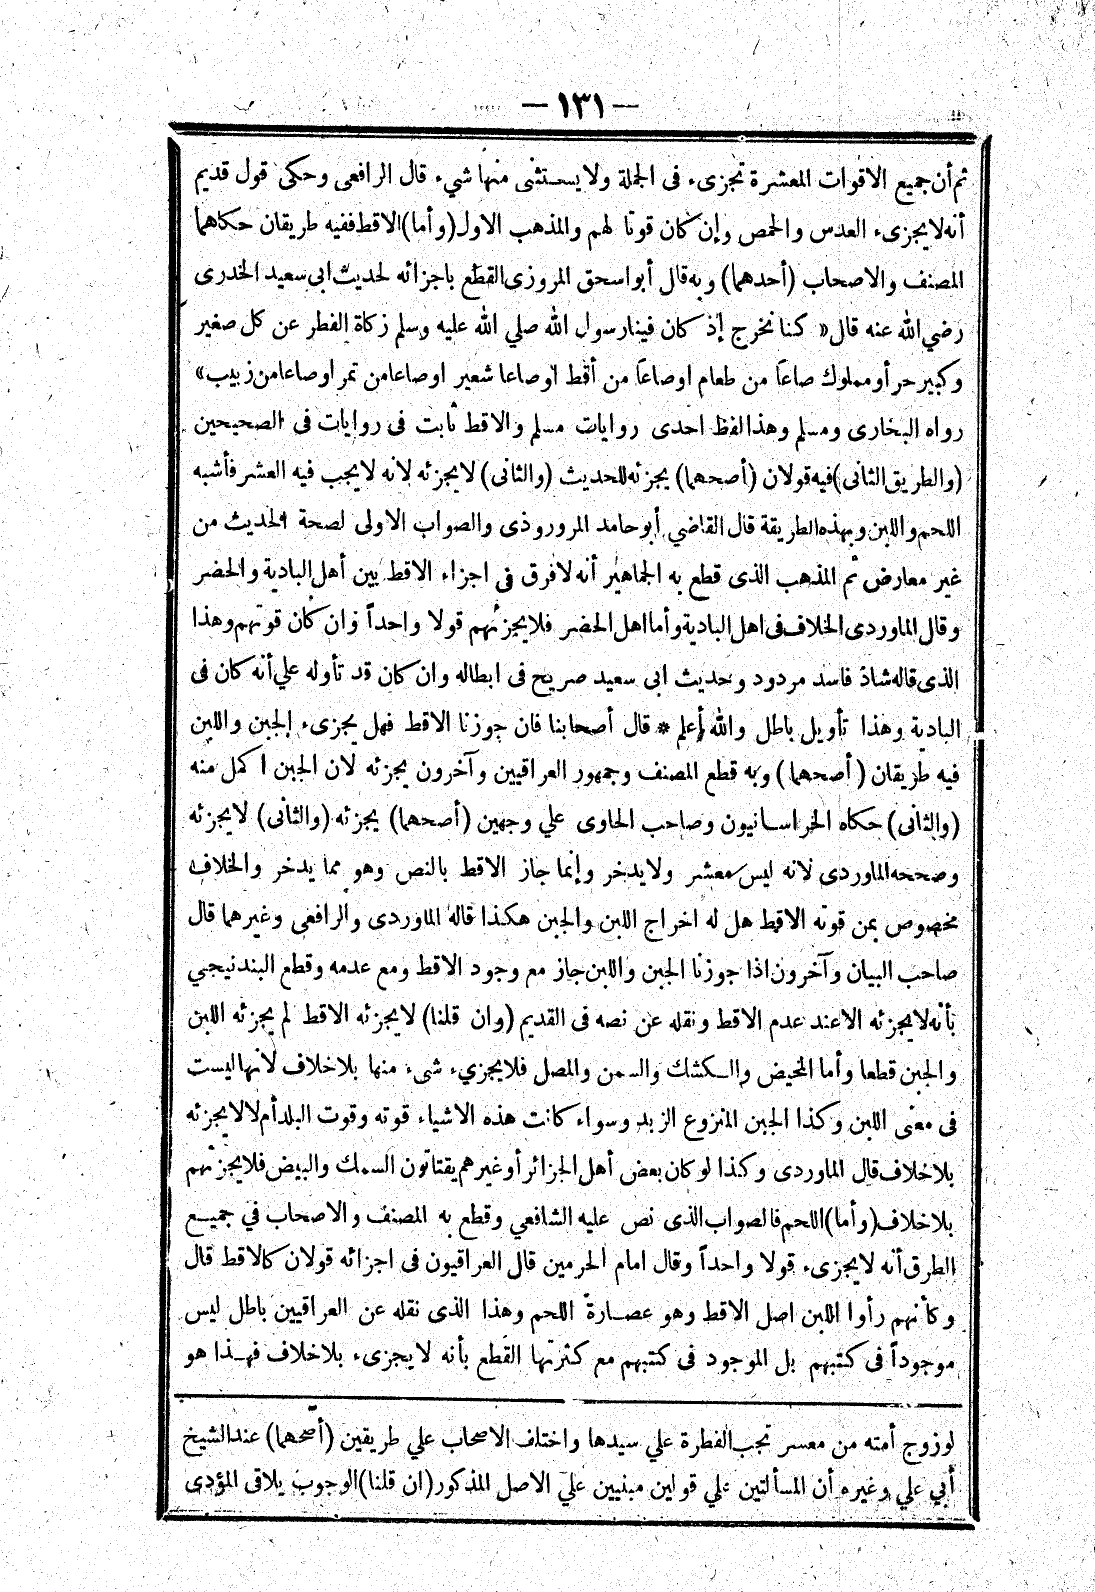 — ١٣١ —
ثم أن جميع الاقوات المعشرة تجزىء فى الجملة ولا يستثنى منها شيء قال الرافعى وحكى قول قديم
أنه لا يجزىء العدس والحمص وإن كان قوتا لهم والمذهب الاول (وأما) الاقط ففيه طريقان حكاهما
المصنف والاصحاب (أحدهما) وبه قال أبو اسحق المروزى القطع باجزائه لحديث ابى سعيد الخدرى
رضي الله عنه قال « كنا نخرج إذ كان فينا رسول الله صلي الله عليه وسلم زكاة الفطر عن كل صغير
وكبير حر أو مملوك صاعا من طعام اوصاعا من أقط اوصاعا شعير اوصاعا من تمر اوصاعا من زبيب »
رواه البخارى ومسلم وهذا لفظ احدى روايات مسلم والاقط ثابت فى روايات فى الصحيحين
(والطريق الثانى) فيه قولان (أصحهما) يجزئه للحديث (والثانى) لا يجزئه لانه لا يجب فيه العشر فأشبه
اللحم واللبن وبهذه الطريقة قال القاضي أبو حامد المروروذى والصواب الاولى لصحة الحديث من
غير معارض ثم المذهب الذى قطع به الجماهير أنه لا فرق فى اجزاء الاقط بين أهل البادية والحضر
وقال الماوردى الخلاف فى اهل البادية وأما اهل الحضر فلا يجزئهم قولا واحداً وان كان قوتهم وهذا
الذى قاله شاذ فاسد مردود وحديث ابى سعيد صريح فى ابطاله وان كان قد تأوله علي أنه كان فى
البادية وهذا تأويل باطل والله أعلم * قال أصحابنا فان جوزنا الاقط فهل يجزىء الجبن واللبن
فيه طريقان (أصحهما) وبه قطع المصنف وجمهور العراقيين وآخرون يجزئه لان الجبن اكمل منه
(والثانى) حكاه الخراسانيون وصاحب الحاوى علي وجهين (أصحهما) يجزئه (والثانى) لا يجزئه
وصححه الماوردى لانه ليس معشر ولا يدخر وإنما جاز الاقط بالنص وهو مما يدخر والخلاف
مخصوص بمن قوته الاقط هل له اخراج اللبن والجبن هكذا قاله الماوردى والرافعى وغيرهما قال
صاحب البيان وآخرون اذا جوزنا الجبن واللبن جاز مع وجود الاقط ومع عدمه وقطع البندنيجي
بأنه لا يجزئه الا عند عدم الاقط ونقله عن نصه فى القديم (وان قلنا) لا يجزئه الاقط لم يجزئه اللبن
والجبن قطعا وأما المخيض والكشك والسمن والمصل فلا يجزيء شىء منها بلا خلاف لانها ليست
فى معنى اللبن وكذا الجبن المنزوع الزبد وسواء كانت هذه الاشياء قوته وقوت البلد أم لا لا يجزئه
بلا خلاف قال الماوردى وكذا لو كان بعض أهل الجزائر أو غيرهم يقتاتون السمك والبيض فلا يجزئهم
بلا خلاف (وأما) اللحم فالصواب الذى نص عليه الشافعي وقطع به المصنف والاصحاب في جميع
الطرق أنه لا يجزىء قولا واحداً وقال امام الحرمين قال العراقيون فى اجزائه قولان كالاقط قال
وكأنهم رأوا اللبن اصل الاقط وهو عصارة اللحم وهذا الذى نقله عن العراقيين باطل ليس
موجوداً فى كتبهم بل الموجود فى كتبهم مع كثرتها القطع بأنه لا يجزىء بلا خلاف فهذا هو
لو زوج أمته من معسر تجب الفطرة علي سيدها واختلف الاصحاب علي طريقين (أصحهما) عند الشيخ
أبي علي وغيره أن المسألتين علي قولين مبنيين علي الاصل المذكور (ان قلنا) الوجوب يلاقى المؤدى